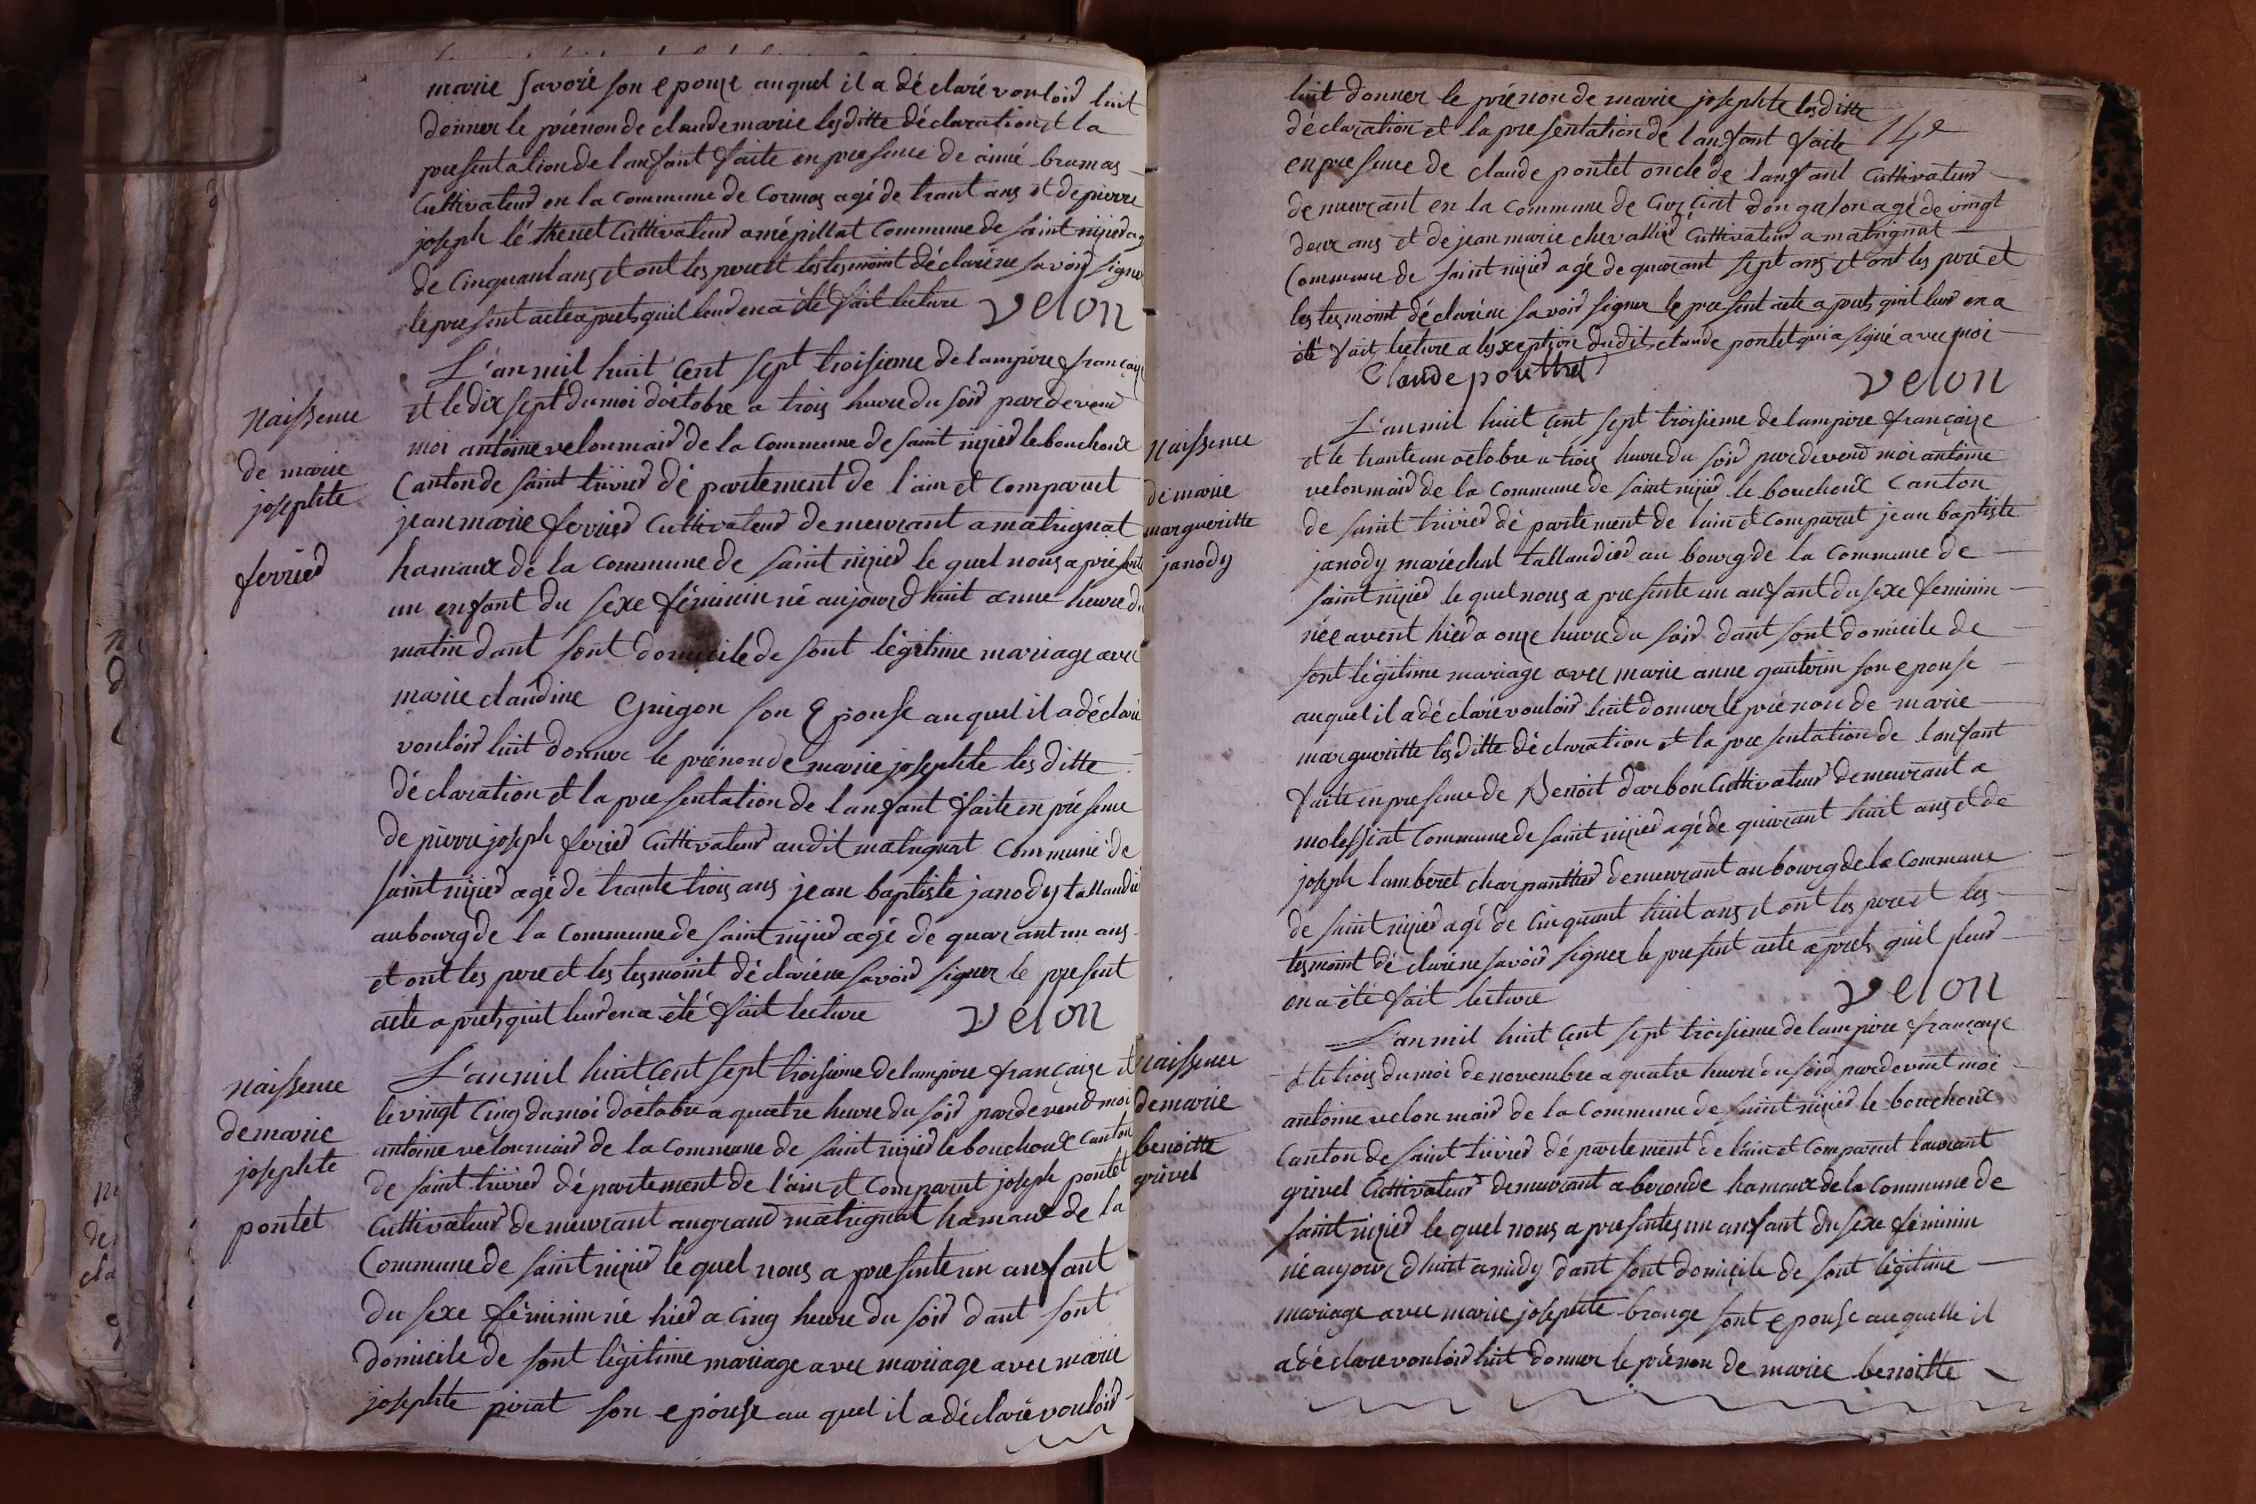 marie Savore son epouze auquel il a déclaré vouloir luit
donner le prénon de claude marie lesditte déclaration et la
presentation de lanfant faite en presence de aimé bramas
Cultivateur en la commune de Cormos agé de trant ans et de pierre
joseph lé thenet Cultivateur a mépillat Commune de saint nizier ag
de Cinquant ans et ont les pere et les tesmoint déclaré ne savoir signe
le present acte aprets quil leur en a été fait lecture velon
L'an mil huit Cent sept troisieme de lampire français
et le dix sept du moi doctobre a trois heure du soir pardevent
moi antoine velon mair de la Commune de saint nizier le bouchoux
Canton de saint trivier dé partement de l'ain et Comparut
jean marie ferrier Cultivateur demeurant a matrignat
hamaux de la commune de saint nizier le quel nous a présenté
un enfant du sexe féminin né aujourd huit a une heure du
matin dant sont domicile de sont légitime mariage avec
marie claudine Guigon son Epouse auquel il a déclaré
vouloir luit donner le prénon de marie josephte les ditte
déclaration et la presentation de lanfant faite en présence
de pierre joseph ferier Cultivateur audit matrignat Commune de
saint nizier agé de trante trois ans jean baptiste janody tallandier
au bourg de la Commune de saint nizier agé de quarant un ans
et ont les pere et les tesmoint déclaré ne savoir signer le present
acte aprets quil leur en a été fait lecture velon
L'an mil huit Cent sept troisieme de lampire française et
le vingt Cinq du moi doctobre a quatre heure du soir pardevend moi
antoine velon mair de la Commune de saint nizier le bouchoux Canton
de saint trivier département de l'ain et Comparut joseph pontet
Cultivateur demeurant au grand matrignat hamaux de la
Commune de saint nizier le quel nous a presente un anfant
du sexe féminin né hier a Cinq heure du soir dant sont
domicile de sont légitime mariage avec mariage avec marie
josephte pirat son epouse au quel il a déclaré vouloir
Naissence
de marie
josephte
ferrier
Naissence
de marie
josephte
pontet
14e
luit donner le prénon de marie josephte lesditte
déclaration et la presentation de lanfant faite
en presence de claude pontet oncle de lanfant Cultivateur
demeurant en la commune de Curciat dongalon agé de vingt
deux ans et de jean marie chevallier Cultivateur a matrignat
Commune de saint nizier agé de quarant sept ans et ont les pere et
les tesmoint déclaré ne savoir signer le present acte aprets quil leur en a
été fait lecture a lesxeption dudit claude pontet qui a signé avec moi
Claude pontthet velon
L'an mil huit Cent sept troisieme de lampire française
et le trante un octobre a trois heure du soir pardevend moi antoine
velon mair de la commune de saint nizier le bouchoux Canton
de saint trivier dé partement de lain et Comparut jean baptiste
janody maréchal tallandier au bourg de la Commune de
saint nizier le quel nous a presente un anfant du sexe feminin
née avent hier a onze heure du soir dant sont domicile de
sont légitime mariage avec marie anne gauterin son epouse
auquel il a déclaré vouloir luit donner le prénon de marie
margueritte lesditte déclaration et la presentation de lanfant
faite en presence de Benoit darbon Cultivateur demeurant a
molessiat Commune de saint nizier agé de quarant huit ans et de
joseph lamberet charpanttier demeurant au bourg de la Commune
de saint nizier agé de Cinquant huit ans et ont les pere et les
tesmoint déclaré ne savoir signer le present acte aprets quil leur
en a été fait lecture velon
L'an mil huit Cent sept troisieme de lampire française
et le trois du moi de novembre a quatre heure du soir pardevent moi
antoine velon mair de la Commune de saint nizier le bouchoux
Canton de saint trivier dé partement de lain et Comparut laurant
grivel Cultivateur demeurant a beronde hamaux de la Commune de
saint nizier le quel nous a presentes un anfant du sexe féminin
né aujourd huit a midy dant sont domicile de sont légitime
mariage avec marie josephte brange sont epouse auquelle il
a déclaré vouloir luit donner le prénon de marie benoitte
Naissence
de marie
margueritte
janody
Naissence
de marie
benoitte
grivel